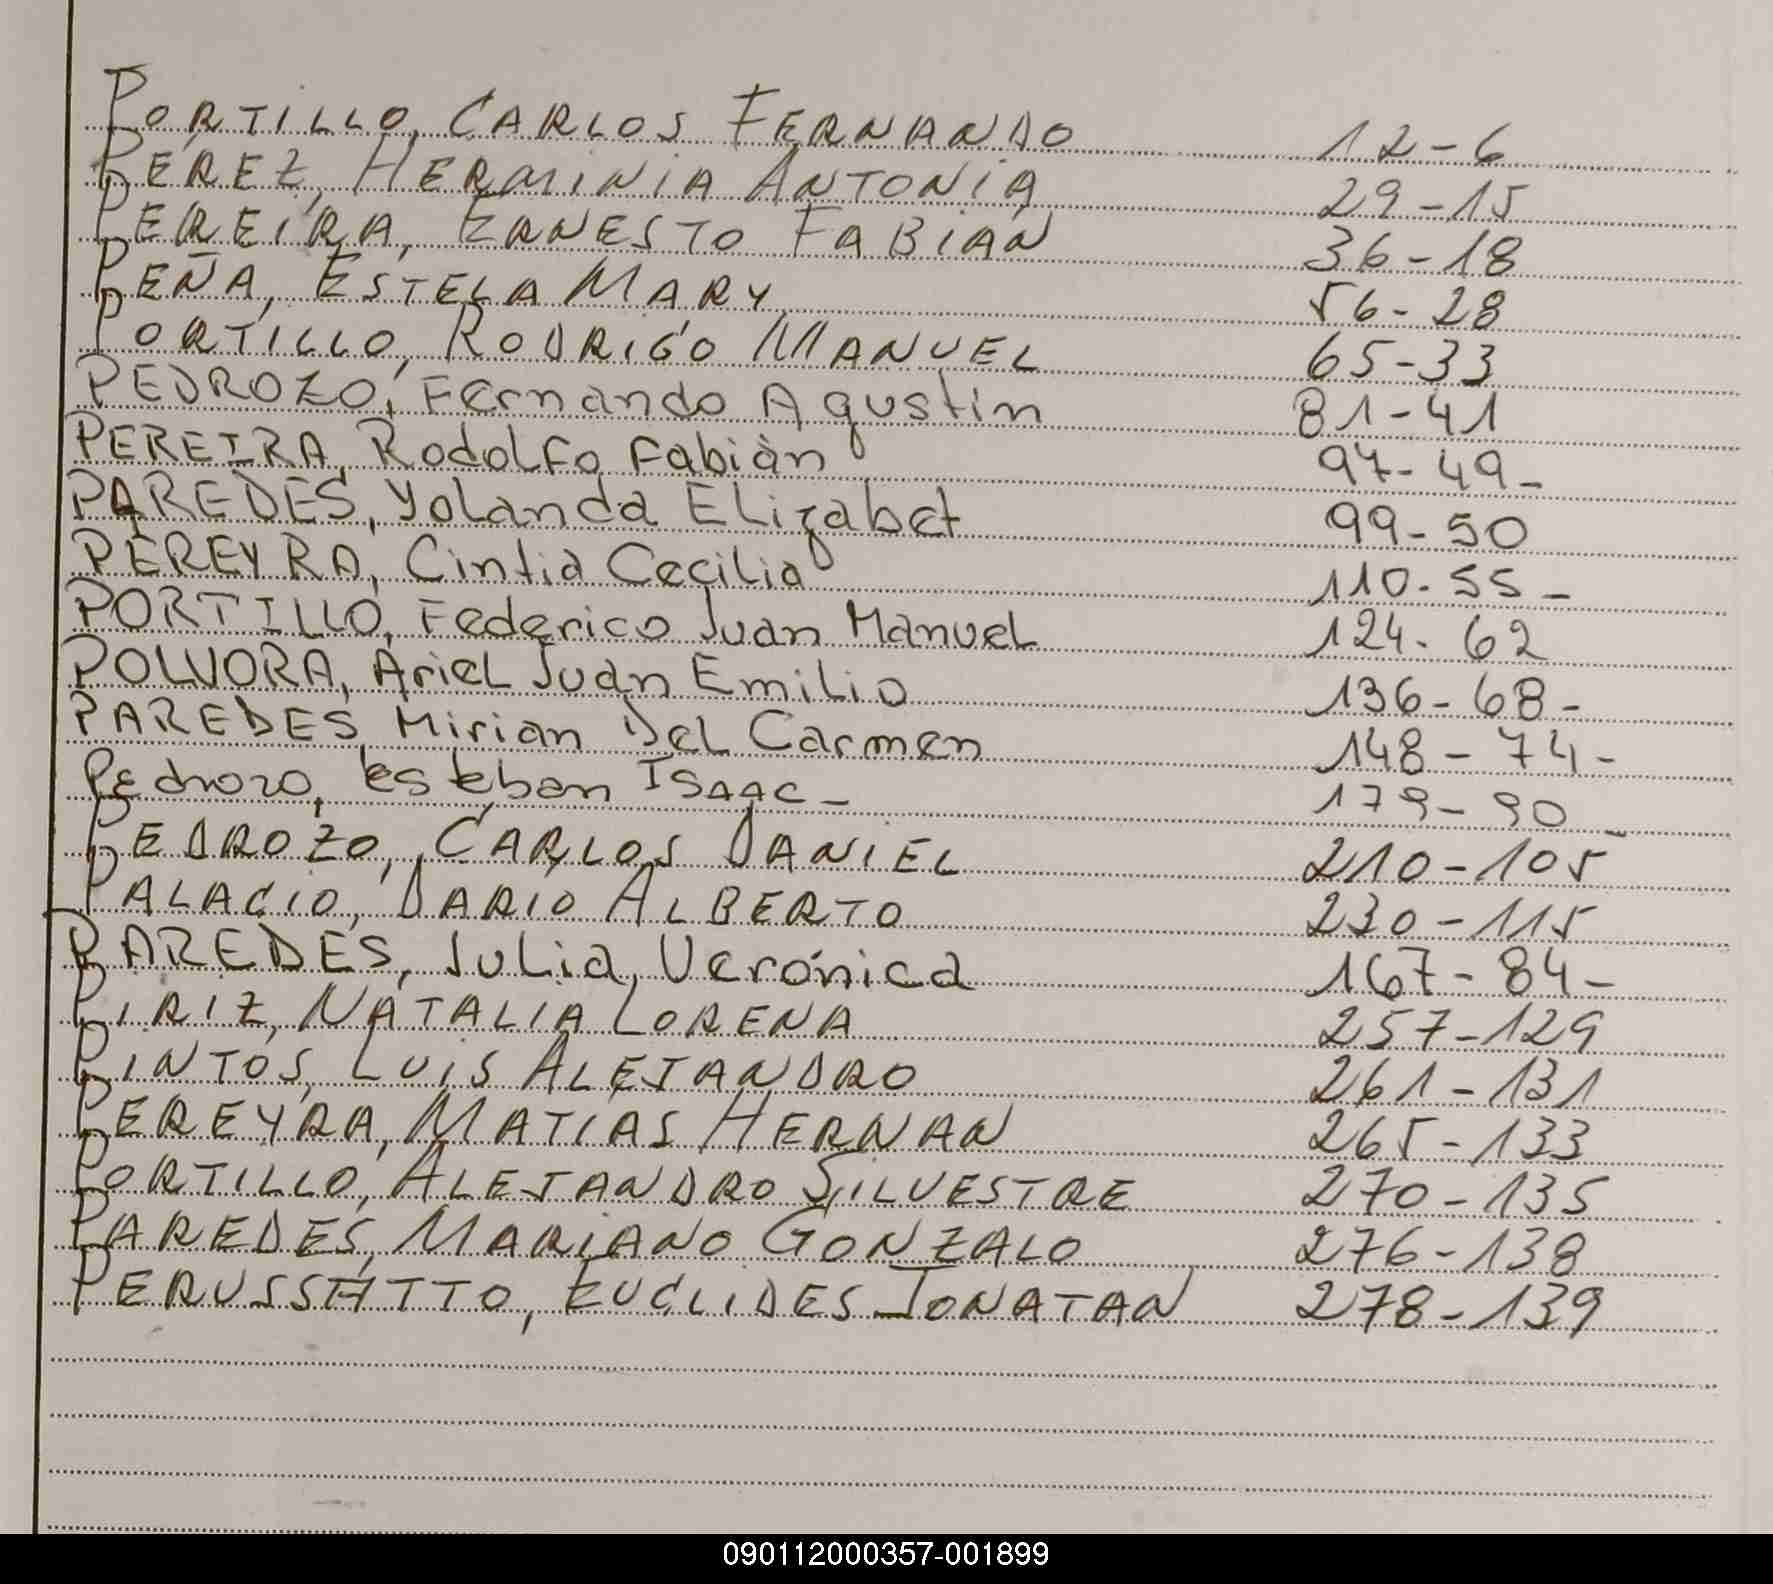 PORTILLO, CARLOS FERNANDO 12-6
PEREZ, HERMINIA ANTONIA 29-15
PEREIRA, ERNESTO FABIAN 36-18
PEÑA, ESTELA MARY 56-28
PORTILLO, RODRIGO MANUEL 65-33
PEDROZO, Fernando Agustin 81-41
PEREIRA, Rodolfo Fabián 97-49-
PAREDES, Yolanda Elizabet 99-50
PEREYRA, Cintia Cecilia 110-55-
PORTILLO, Federico Juan Manuel 124-62
POLVORA, Ariel Juan Emilio 136-68-
PAREDES, Mirian Del Carmen 148-74-
Pedrozo, Esteban ISAAC- 179-90-
PEDROZO, CARLOS DANIEL 210-105
PALACIO, DARIO ALBERTO 230-115
PAREDES, Julia, Verónica 167-84-
PIRIZ, NATALIA LORENA 257-129
PINTOS, LUIS ALEJANDRO 261-131
PEREYRA, MATIAS HERNAN 265-133
PORTILLO, ALEJANDRO SILVESTRE 270-135
PAREDES, MARIANO GONZALO 276-138
PERUSSATTO, EUCLIDES JONATAN 278-139
090112000357-001899